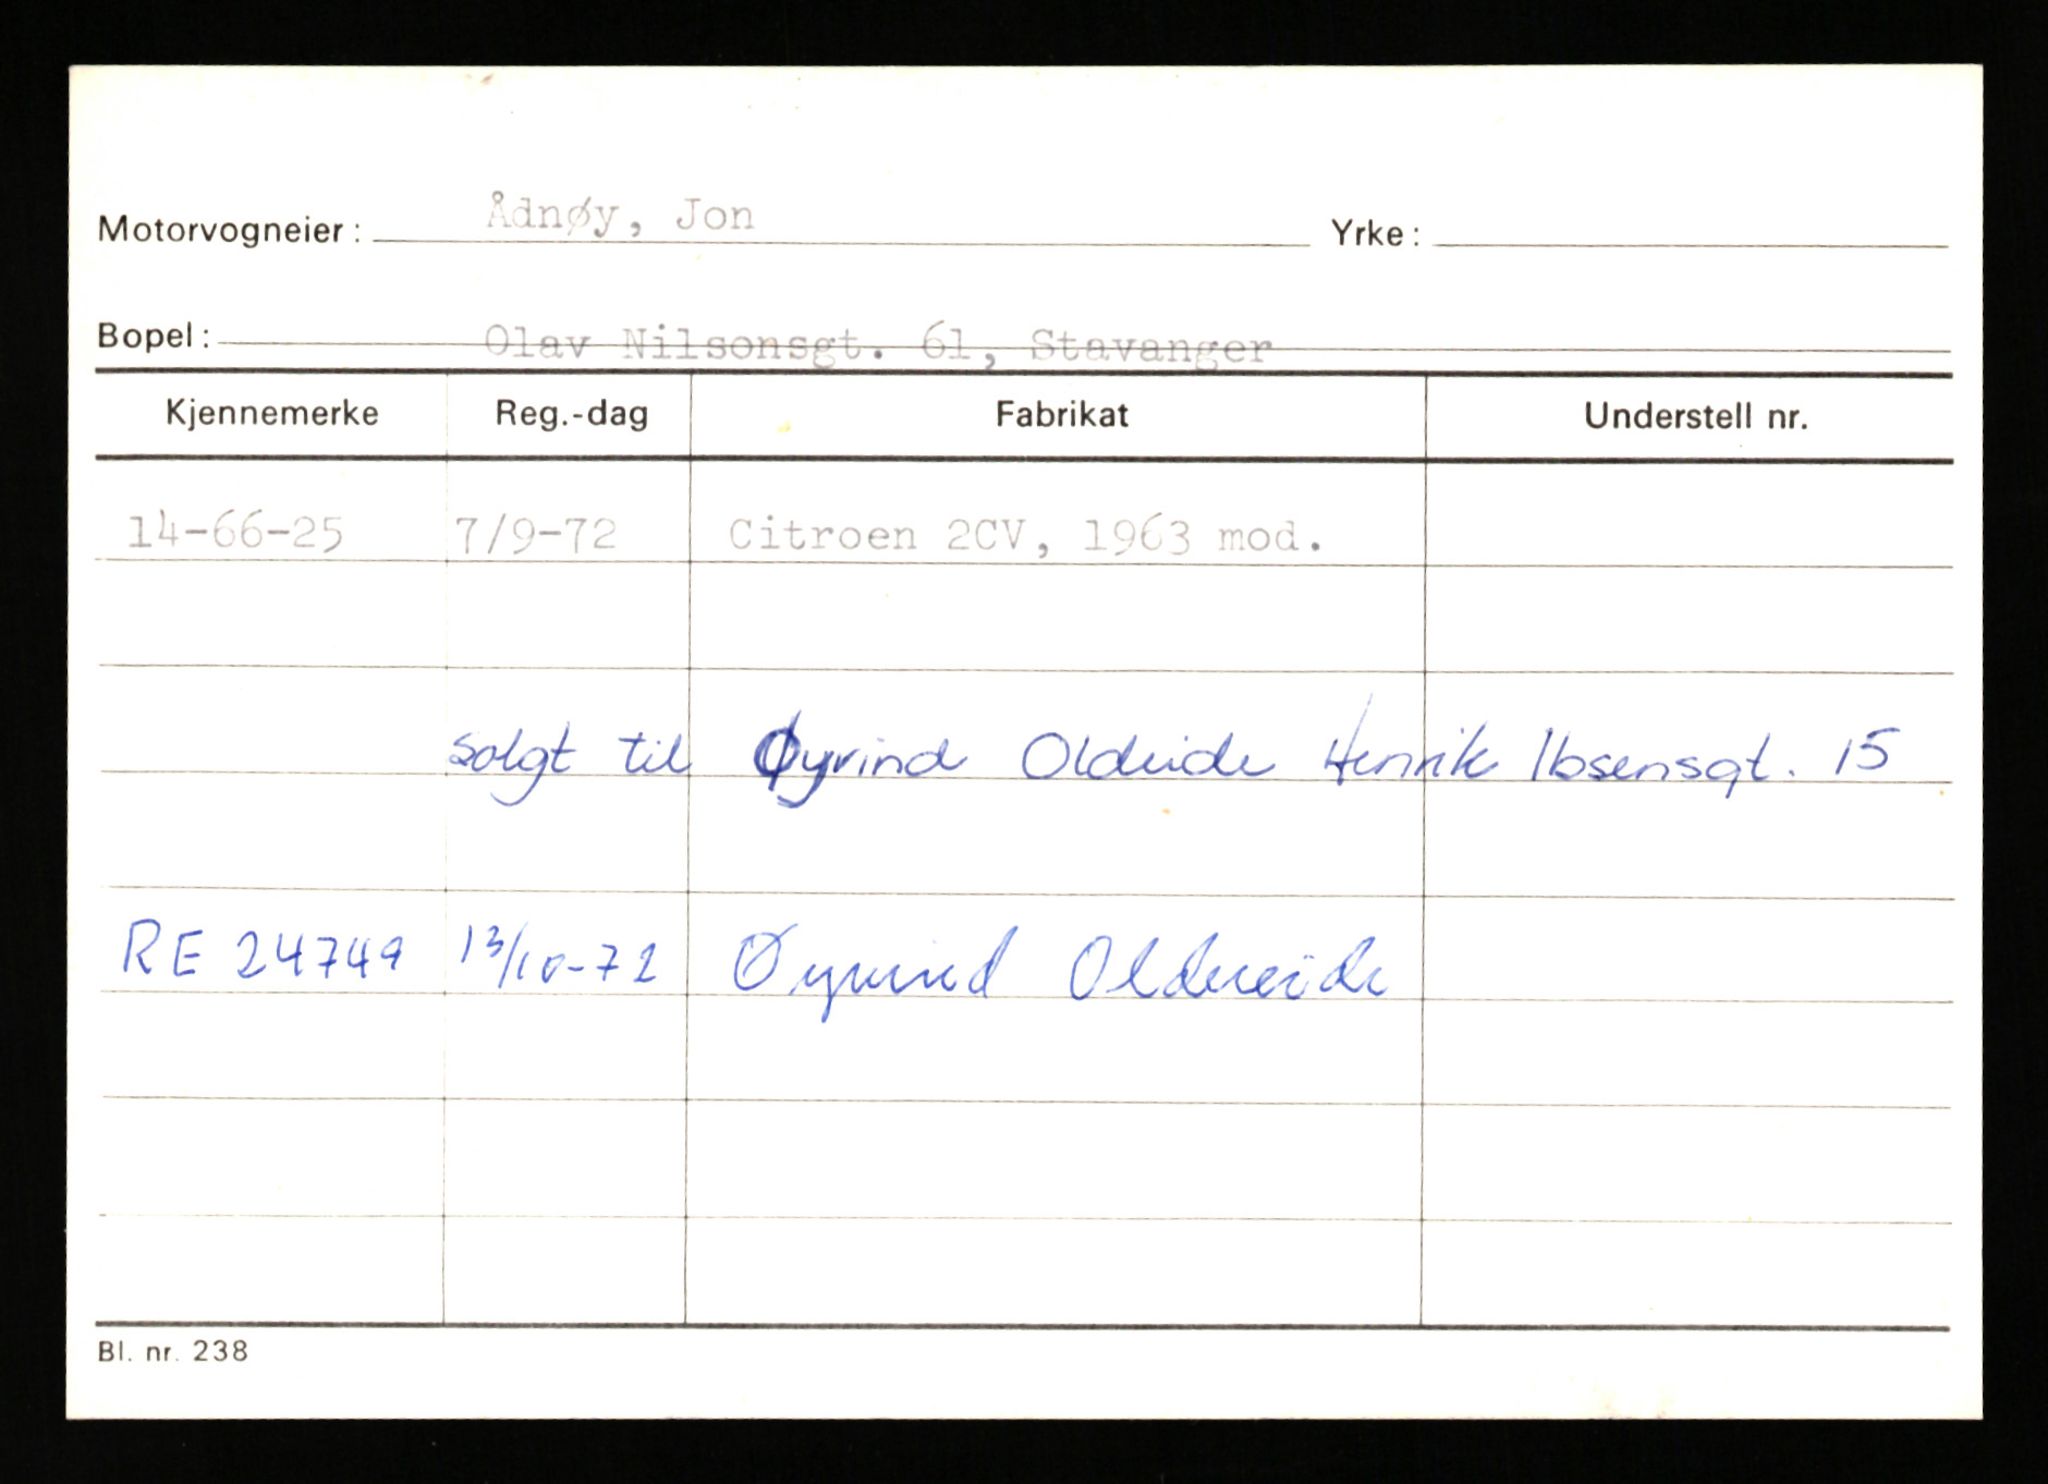 Motorvogneier: Ådnøy, Jon Yrke:
Bopel: Olav Nilsonsgt. 61, Stavanger
Kjennemerke Reg.-dag Fabrikat Understell nr.
14-66-25 7/9-72 Citroen 2CV, 1963 mod.
solgt til Øyvind Oldeide Henrik Ibsensgt. 15
RE 24749 13/10-72 Øyvind Oldereide
Bl. nr. 238